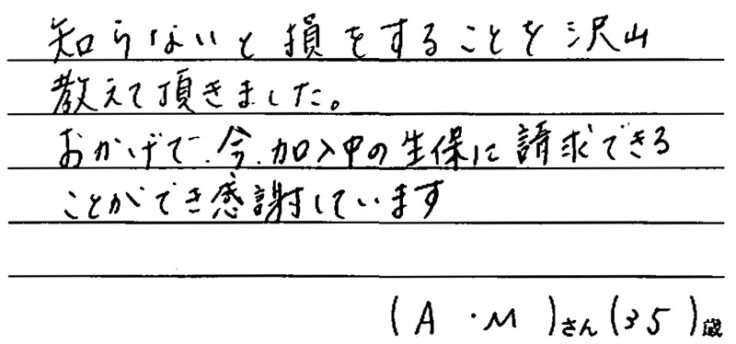 知らないと損をすることを沢山
教えて頂きました。
おかげで、今、加入中の生保に請求できる
ことができ感謝しています
(A・M)さん(35)歳